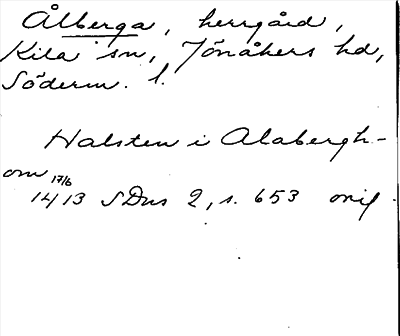 Ålberga, herrgård,
Kila sn, Jönåkers hd,
Söderm. l.
Halsten i Alabergh-
om
17/6
1413 SDns 2, s. 653 orig.